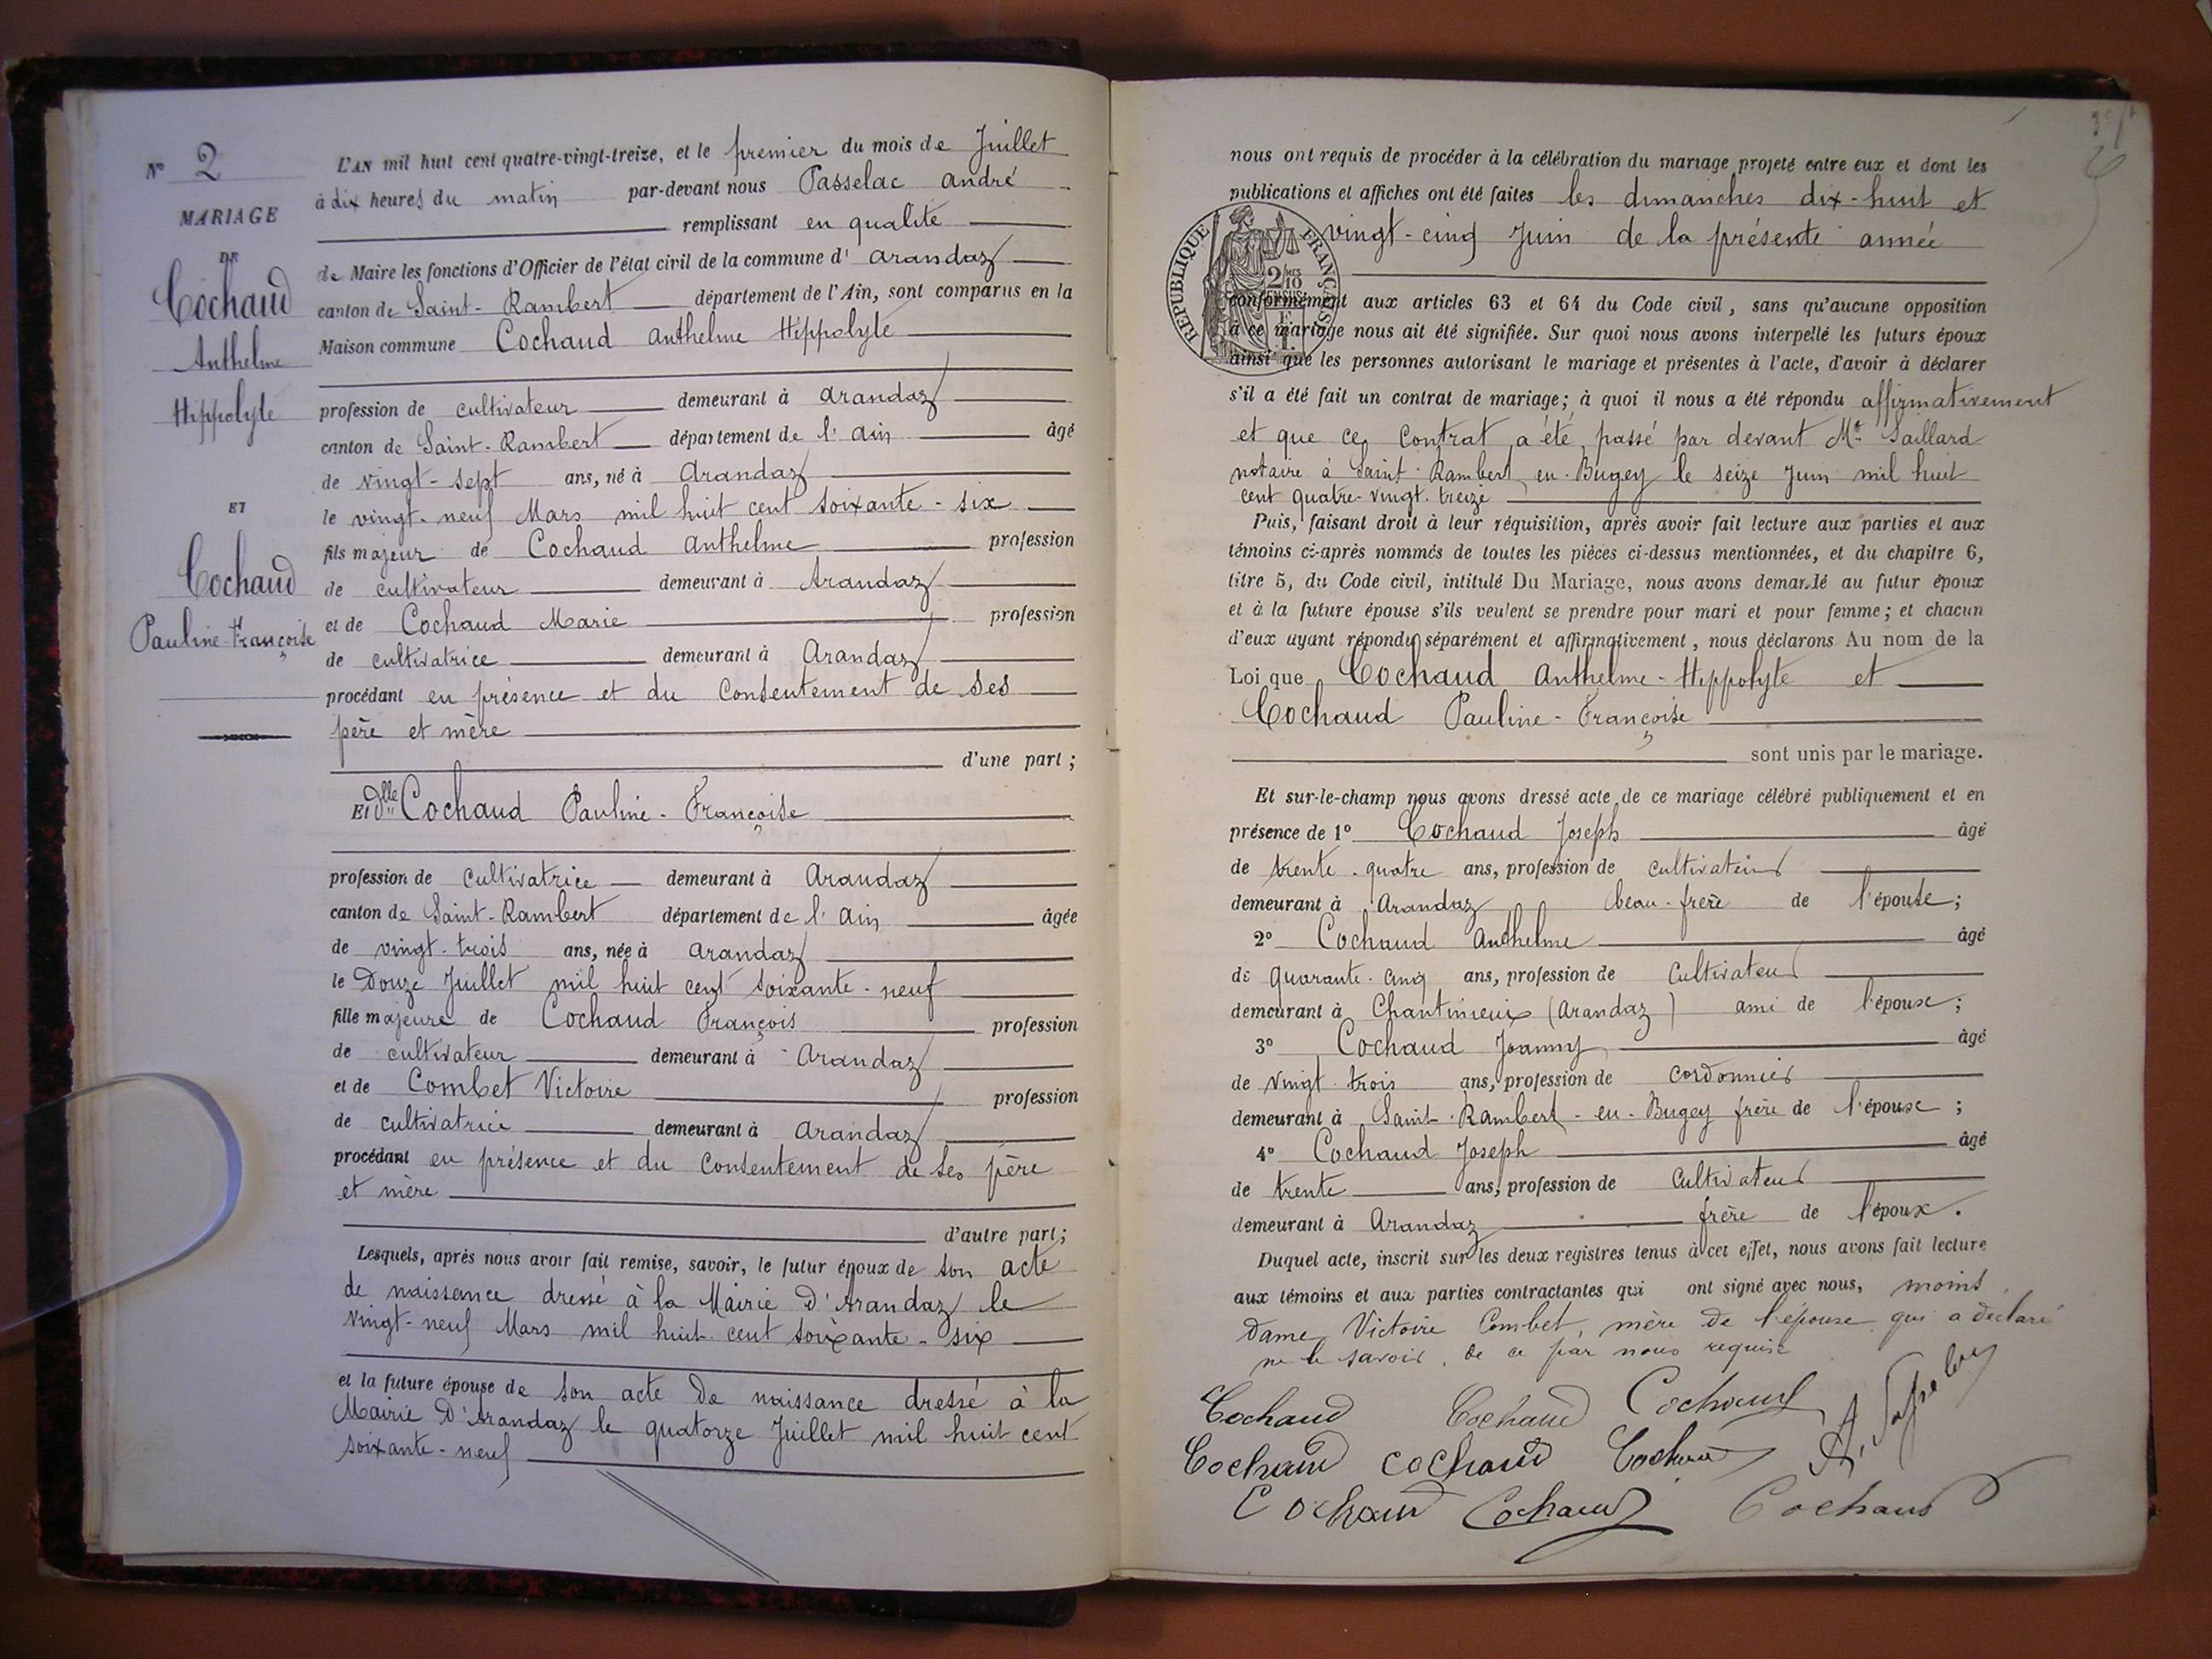 N° 2
MARIAGE
DE
Cochaud
Anthelme
Hippolyte
ET
Cochaud
Pauline-Françoise
L'AN mil huit cent quatre-vingt-treize, et le premier du mois de Juillet
à dix heures du matin par-devant nous Passelac andré
remplissant en qualité
de Maire les fonctions d'Officier de l'état civil de la commune d' arandaz
canton de Saint-Rambert département de l'Ain, sont comparus en la
Maison commune Cochaud anthelme Hippolyte
profession de cultivateur demeurant à arandaz
canton de Saint-Rambert département de l'ain âgé
de vingt-sept ans, né à Arandaz
le vingt-neuf Mars mil huit cent soixante-six
fils majeur de Cochaud anthelme profession
de cultivateur demeurant à Arandaz
et de Cochaud Marie profession
de cultivatrice demeurant à Arandaz
procédant en présence et du consentement de ses
père et mère
d'une part ;
Et dlle Cochaud Pauline-Françoise
profession de cultivatrice demeurant à Arandaz
canton de Saint-Rambert département de l'ain âgée
de vingt-trois ans, née à arandaz
le Douze Juillet mil huit cent soixante-neuf
fille majeure de Cochaud François profession
de cultivateur demeurant à Arandaz
et de Combet Victoire profession
de cultivatrice demeurant à arandaz
procédant en présence et du consentement de ses père
et mère
d'autre part ;
Lesquels, après nous avoir fait remise, savoir, le futur époux de son acte
de naissance dressé à la Mairie d'Arandaz le
vingt-neuf Mars mil huit cent soixante-six
et la future épouse de son acte de naissance dressé à la
Mairie D'Arandaz le quatorze Juillet mil huit cent
soixante-neuf
nous ont requis de procéder à la célébration du mariage projeté entre eux et dont les
publications et affiches ont été faites les dimanches dix-huit et
vingt-cinq Juin de la présente année
RÉPUBLIQUE FRANÇAISE
2/10
conformément aux articles 63 et 64 du Code civil, sans qu'aucune opposition
à ce mariage nous ait été signifiée. Sur quoi nous avons interpellé les futurs époux
ainsi que les personnes autorisant le mariage et présentes à l'acte, d'avoir à déclarer
s'il a été fait un contrat de mariage; à quoi il nous a été répondu affirmativement
et que ce contrat a été passé par devant Me Saillard
notaire à Saint-Rambert en-Bugey le seize Juin mil huit
cent quatre-vingt-treize
Puis, faisant droit à leur réquisition, après avoir fait lecture aux parties et aux
témoins ci-après nommés de toutes les pièces ci-dessus mentionnées, et du chapitre 6,
titre 5, du Code civil, intitulé Du Mariage, nous avons demandé au futur époux
et à la future épouse s'ils veulent se prendre pour mari et pour femme; et chacun
d'eux ayant répondu séparément et affirmativement, nous déclarons Au nom de la
Loi que Cochaud Anthelme-Hippolyte et
Cochaud Pauline-Françoise
sont unis par le mariage.
Et sur-le-champ nous avons dressé acte de ce mariage célébré publiquement et en
présence de 1° Cochaud Joseph âgé
de trente-quatre ans, profession de cultivateur
demeurant à Arandaz beau-frère de l'épouse;
2° Cochaud Anthelme âgé
de quarante-cinq ans, profession de cultivateur
demeurant à Chantinieux (Arandaz) ami de l'épouse;
3° Cochaud Joanny âgé
de vingt-trois ans, profession de cordonnier
demeurant à Saint-Rambert-en-Bugey frère de l'épouse;
4° Cochaud Joseph âgé
de trente ans, profession de Cultivateur
demeurant à Arandaz frère de l'époux.
Duquel acte, inscrit sur les deux registres tenus à cet effet, nous avons fait lecture
aux témoins et aux parties contractantes qui ont signé avec nous, moins
Dame Victoire Combet, mère de l'épouse qui a déclaré
ne le savoir, de ce par nous requise
Cochaud Cochaud Cochaud
Cochaud Cochaud Cochaud
Cochaud Cochaud Cochaud